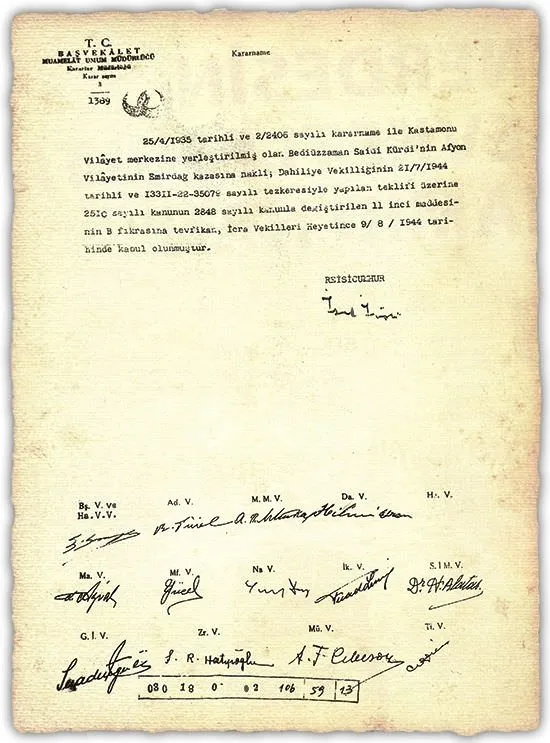 T. C.
BAŞVEKÂLET
MUAMELÂT UMUM MÜDÜRLÜĞÜ
Kararlar Müdürlüğü
Karar sayısı
3
1389
Kararname
25/4/1935 tarihli ve 2/2406 sayılı kararname ile Kastamonu
Vilâyet merkezine yerleştirilmiş olan Bediüzzaman Saidi Kürdi'nin Afyon
Vilâyetinin Emirdağ kazasına nakli; Dahiliye Vekilliğinin 21/7/1944
tarihli ve 13311-22-35079 sayılı tezkeresiyle yapılan teklifi üzerine
2510 sayılı kanunun 2848 sayılı kanunla değiştirilen 11 inci maddesi-
nin B fıkrasına tevfikan, İcra Vekilleri Heyetince 9/ 8 / 1944 tari-
hinde kabul olunmuştur.
REİSİCUMHUR
Bş. V. ve
Ha.V.V.
Ad. V.
M. M. V.
Da. V.
Ha. V.
Ma. V.
Mf. V.
Na V.
İk. V.
S. İ M. V.
Yücel
Dr. H. Alataş
G. İ. V.
Zr. V.
Mü. V.
Ti. V.
Ş. R. Hatipoğlu
A. F. Cebesoy
030 18 0 02 106 59 13